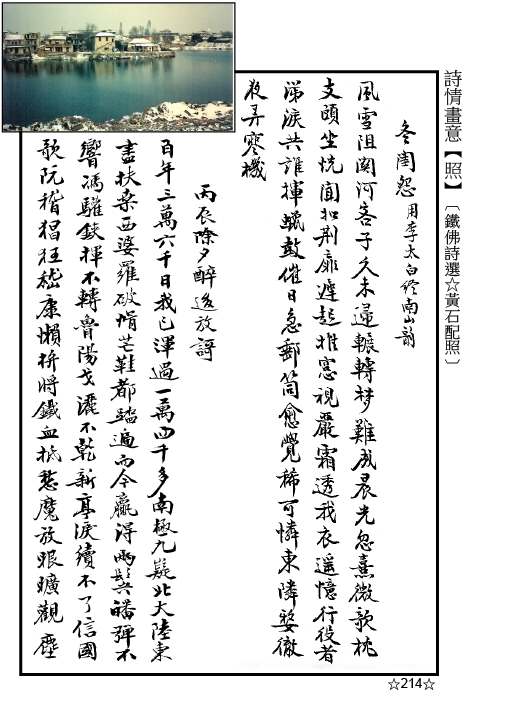 詩情畫意【照】〔鐵佛詩選☆黃石配照〕
冬閨怨 用李太白終南山韵
風雪阻関河客子久未還輾轉梦難成晨光忽熹微欹枕
支頤坐恍聞扣荊扉遽起推窓視嚴霜透我衣遥憶行役者
涕淚共誰揮蠟鼓催日急郵筒愈覺稀可憐東隣嫠徹
夜弄寒機
丙辰除夕醉後放謌
百年三萬六千日我已渾過一萬四千多南極九嶷北大陸東
盡扶桑西婆羅破帽芒鞋都踏遍而今贏得兩鬓皤彈不
響馮驩鋏揮不轉魯陽戈灑不乾新亭淚續不了信國
歌阮籍猖狂嵇康懶拚將鐵血抵愁魔放眼曠觀塵
☆214☆